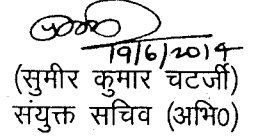 19/6/2014
(सुमीर कुमार चटर्जी)
संयुक्त सचिव (अभि0)